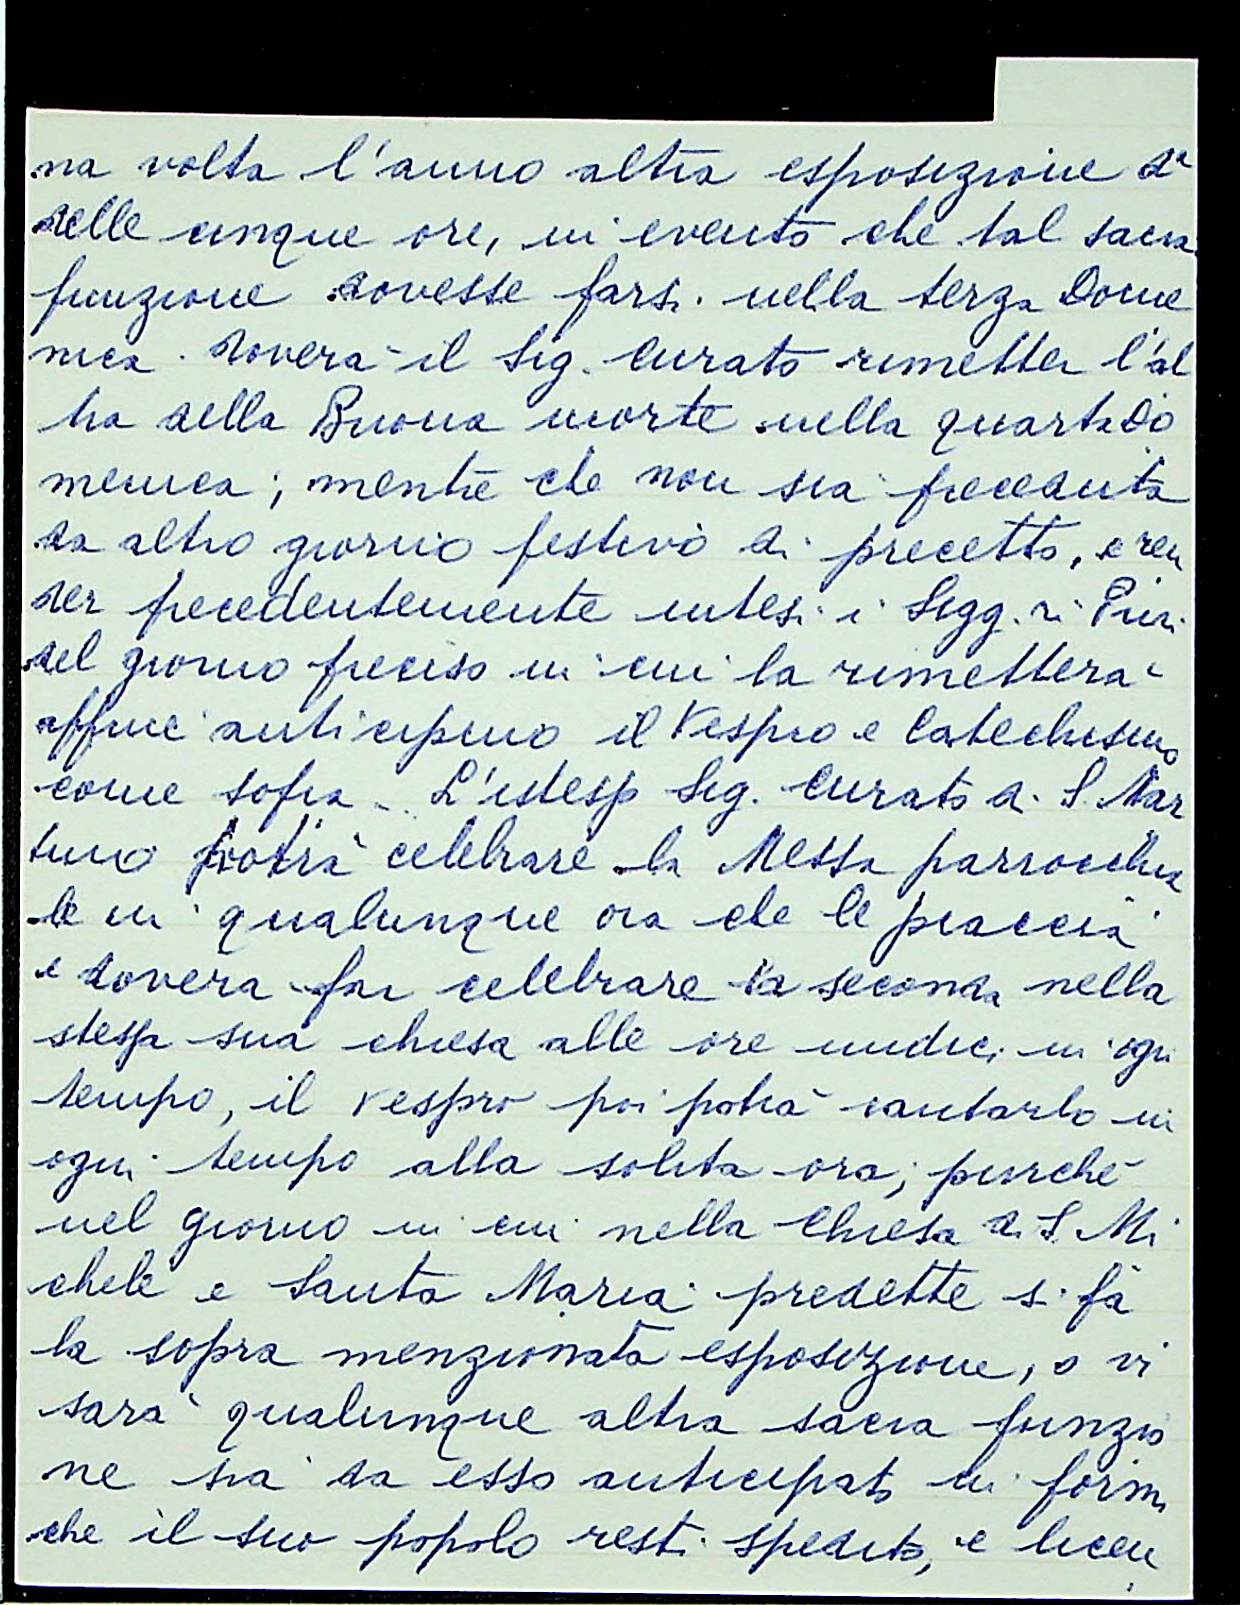 na volta l'anno altra esposizione d.a
delle cinque ore, in evento che tal sacra
funzione dovesse farsi nella terza Dome
nica. Dovera il Sig. Curato rimetter l'al
tra della Buona morte nella quarta Do
menica; mentre che non sia preceduta
da altro giorno festivo di precetto, e ren
der precedentemente intesi i Sigg.ri Priori
del giorno preciso in cui la rimetterà
affine anticipino il Vespro e Catechismo
come sopra. L'istesso Sig. Curato di S. Mar
tino potrà celebrare la Messa parrocchia
le in qualunque ora che le piaccia
e dovera far celebrare la seconda nella
stessa sua chiesa alle ore undici in ogni
tempo, il vespro poi potrà cantarlo in
ogni tempo alla solita ora; purché
nel giorno in cui nella Chiesa di S. Mi
chele e Santa Maria predette si fà
la sopra menzionata esposizione, o vi
sarà qualunque altra sacra funzio
ne sia da esso anticipato in forma
che il suo popolo resti spedito, e licen